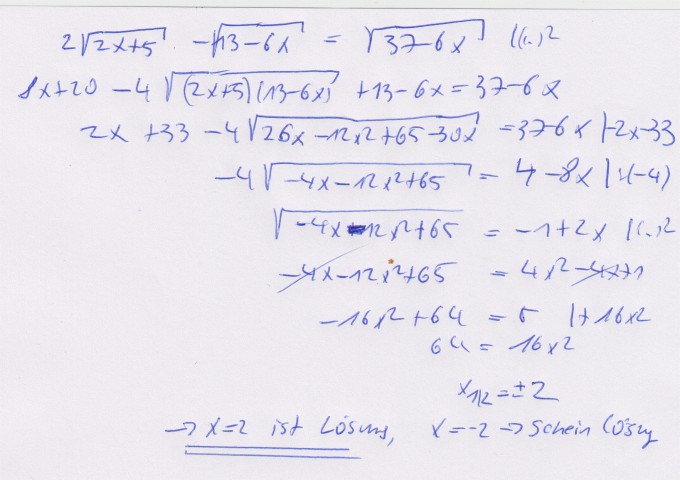 2√(2x+5) - √(13-6x) = √(37-6x) |(..)²
8x+20 - 4√((2x+5)(13-6x)) + 13-6x = 37-6x
2x + 33 - 4√(26x - 12x² + 65 - 30x) = 37-6x |-2x-33
-4√(-4x - 12x² + 65) = 4 - 8x |:(-4)
√(-4x - 12x² + 65) = -1 + 2x |(..)²
-4x - 12x² + 65 = 4x² - 4x + 1
-16x² + 64 = 0 |+16x²
64 = 16x²
x1/2 = ±2
→ x=2 ist Lösung, x=-2 → Scheinlösung